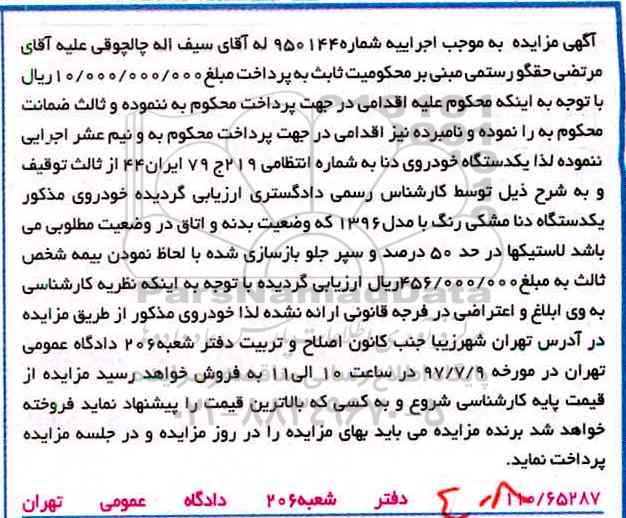 آگهی مزایده به موجب اجراییه شماره۹۵۰۱۴۴ له آقای سیف اله چالچوقی علیه آقای
مرتضی حقگو رستمی مبنی بر محکومیت ثابت به پرداخت مبلغ۱۰/۰۰۰/۰۰۰/۰۰۰ریال
با توجه به اینکه محکوم علیه اقدامی در جهت پرداخت محکوم به ننموده و ثالث ضمانت
محکوم به را نموده و نامبرده نیز اقدامی در جهت پرداخت محکوم به و نیم عشر اجرایی
ننموده لذا یکدستگاه خودروی دنا به شماره انتظامی ۲۱۹ج ۷۹ ایران۴۴ از ثالث توقیف
و به شرح ذیل توسط کارشناس رسمی دادگستری ارزیابی گردیده خودروی مذکور
یکدستگاه دنا مشکی رنگ با مدل۱۳۹۶ که وضعیت بدنه و اتاق در وضعیت مطلوبی می
باشد لاستیکها در حد ۵۰ درصد و سپر جلو بازسازی شده با لحاظ نمودن بیمه شخص
ثالث به مبلغ۴۵۶/۰۰۰/۰۰۰ریال ارزیابی گردیده با توجه به اینکه نظریه کارشناسی
ParsNamadData
به وی ابلاغ و اعتراضی در فرجه قانونی ارائه نشده لذا خودروی مذکور از طریق مزایده
در آدرس تهران شهرزیبا جنب کانون اصلاح و تربیت دفتر شعبه۲۰۶ دادگاه عمومی
تهران در مورخه ۹۷/۷/۹ در ساعت ۱۰ الی۱۱ به فروش خواهد رسید مزایده از
قیمت پایه کارشناسی شروع و به کسی که بالاترین قیمت را پیشنهاد نماید فروخته
۰۲۱-۸۸۳۴۹۶۷۰-۵
خواهد شد برنده مزایده می باید بهای مزایده را در روز مزایده و در جلسه مزایده
پرداخت نماید.
۱۱۰/۶۵۲۸۷ دفتر شعبه۲۰۶ دادگاه عمومی تهران